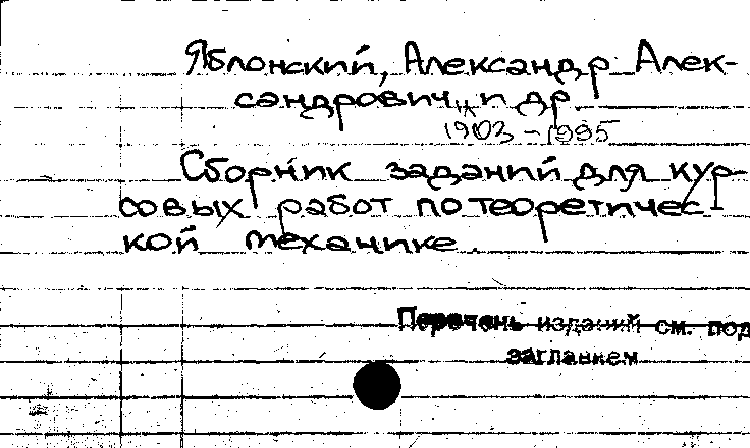 Яблонский, Александр Алек-
сандрович и др.
1903-1995
Сборник заданий для кур-
совых работ по теоретичес-
кой механике.
Перечень изданий см. под
заглавием